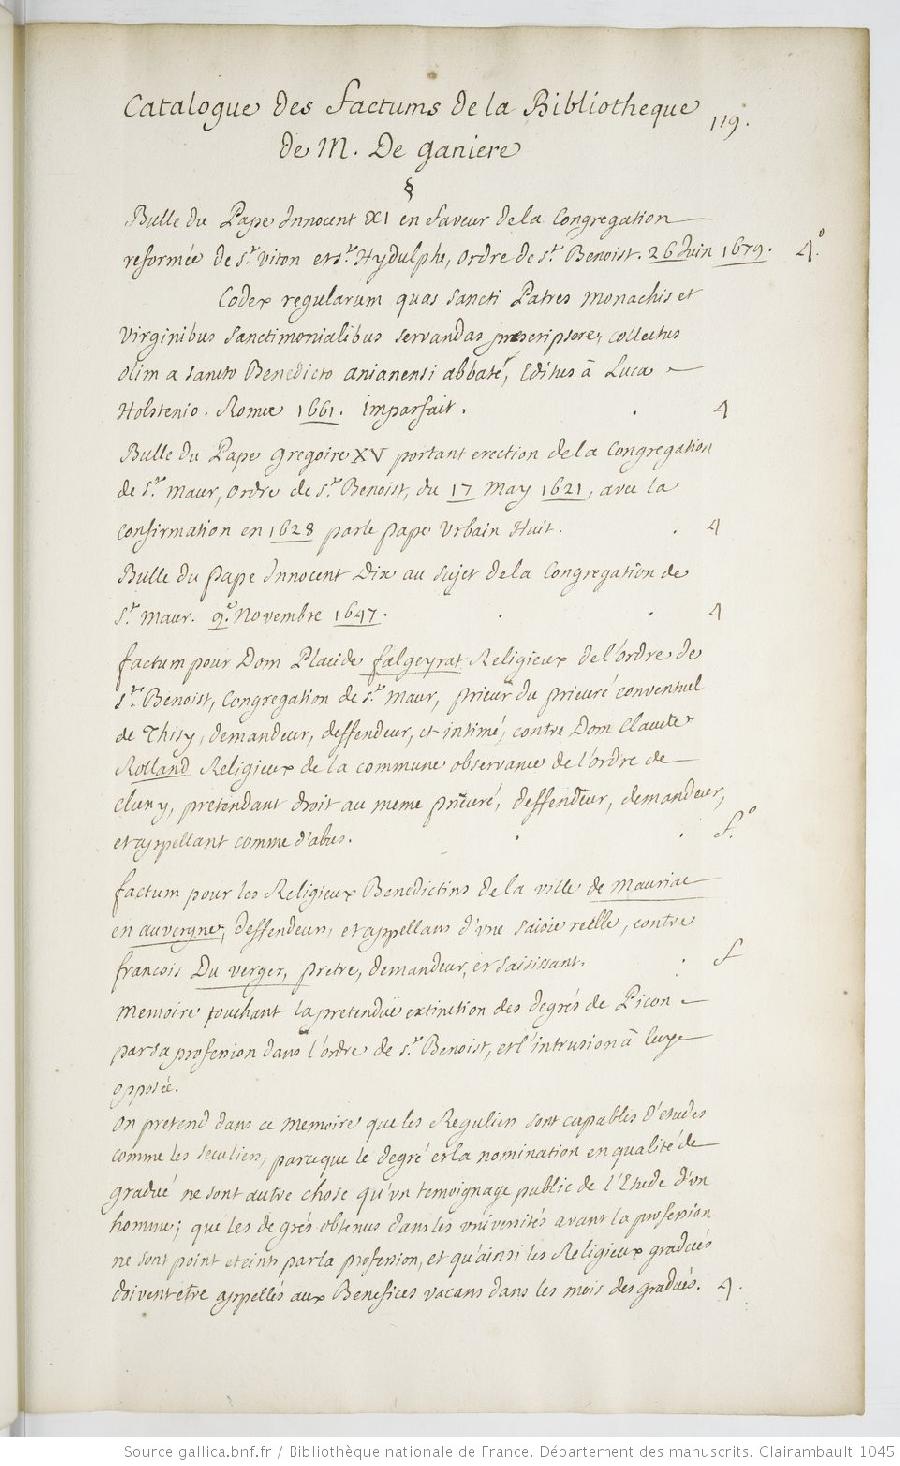 Catalogue des factums de la Bibliotheque
119.
de M. De ganiere
§
Bulle du Pape Innocent XI en faveur de la Congregation
reformée de st. viton et st. Hydulphe, ordre de st. Benoist. 26 Juin 1679. 4°.
Codex regularum quas sancti Patres monachis et
Virginibus sanctimonialibus servandas præscripsere, collectus
olim a sancto Benedicto anianensi abbate, Editus à Luca
Holstenio. Romæ 1661. imparfait. 4
Bulle du Pape gregoire XV portant erection de la Congregation
de st. Maur, ordre de st. Benoist, du 17 May 1621, avec la
Confirmation en 1628 par le pape Urbain Huit. 4
Bulle du pape Innocent Dix au sujet de la Congregation de
st. Maur. 9e. Novembre 1647. 4
factum pour Dom Placide falgeyrat Religieux de l'ordre de
st. Benoist, Congregation de st. Maur, prieur du prieuré conventuel
de Thisy, demandeur, deffendeur, et intimé, contre Dom Claude
Rolland Religieux de la commune observance de l'ordre de
cluny, pretendant droit au meme prieuré, deffendeur, demandeur,
et appellant comme d'abus. f.°
factum pour les Religieux Benedictins de la ville de Mauriac
en auvergne, deffendeurs, et appellans d'une saisie réelle, contre
francois Du verger, pretre, demandeur, et saisissant. f
Memoire touchant la pretendue extinction des degrés de Picon
par sa profession dans l'ordre de st. Benoist, et l'intrusion à luy
opposée.
On pretend dans ce memoire que les Reguliers sont capables d'etudes
comme les seculiers, parceque le degré et la nomination en qualité de
gradué ne sont autre chose qu'un temoignage public de l'Etude d'un
homme; que les degrés obtenus dans les universités avant la profession
ne sont point eteints par la profession, et qu'ainsi les Religieux gradués
doivent etre appellés aux Benefices vacans dans les mois des gradués. 4.
Source gallica.bnf.fr / Bibliothèque nationale de France. Département des manuscrits. Clairambault 1045